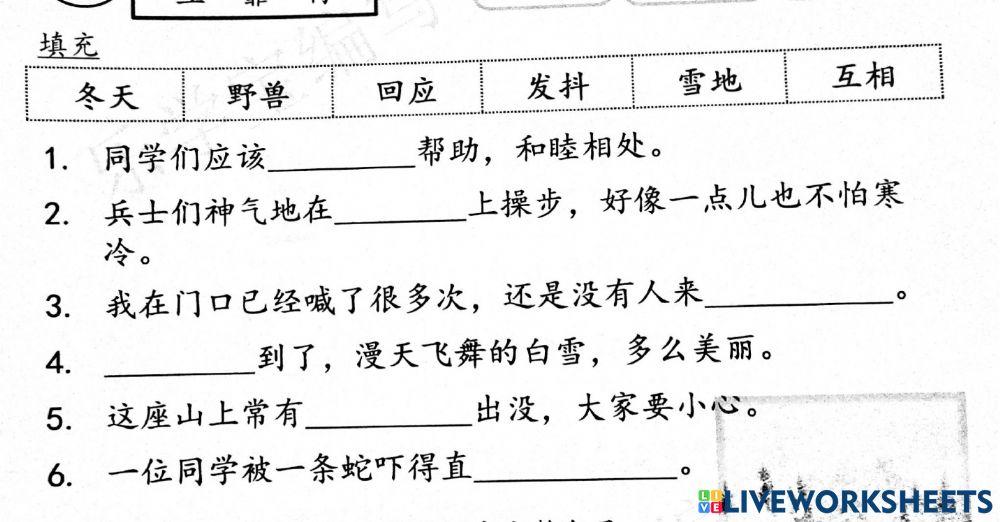 填充
冬天 野兽 回应 发抖 雪地 互相
1. 同学们应该________帮助，和睦相处。
2. 兵士们神气地在________上操步，好像一点儿也不怕寒
冷。
3. 我在门口已经喊了很多次，还是没有人来________。
4. ________到了，漫天飞舞的白雪，多么美丽。
5. 这座山上常有________出没，大家要小心。
6. 一位同学被一条蛇吓得直________。
LIVEWORKSHEETS